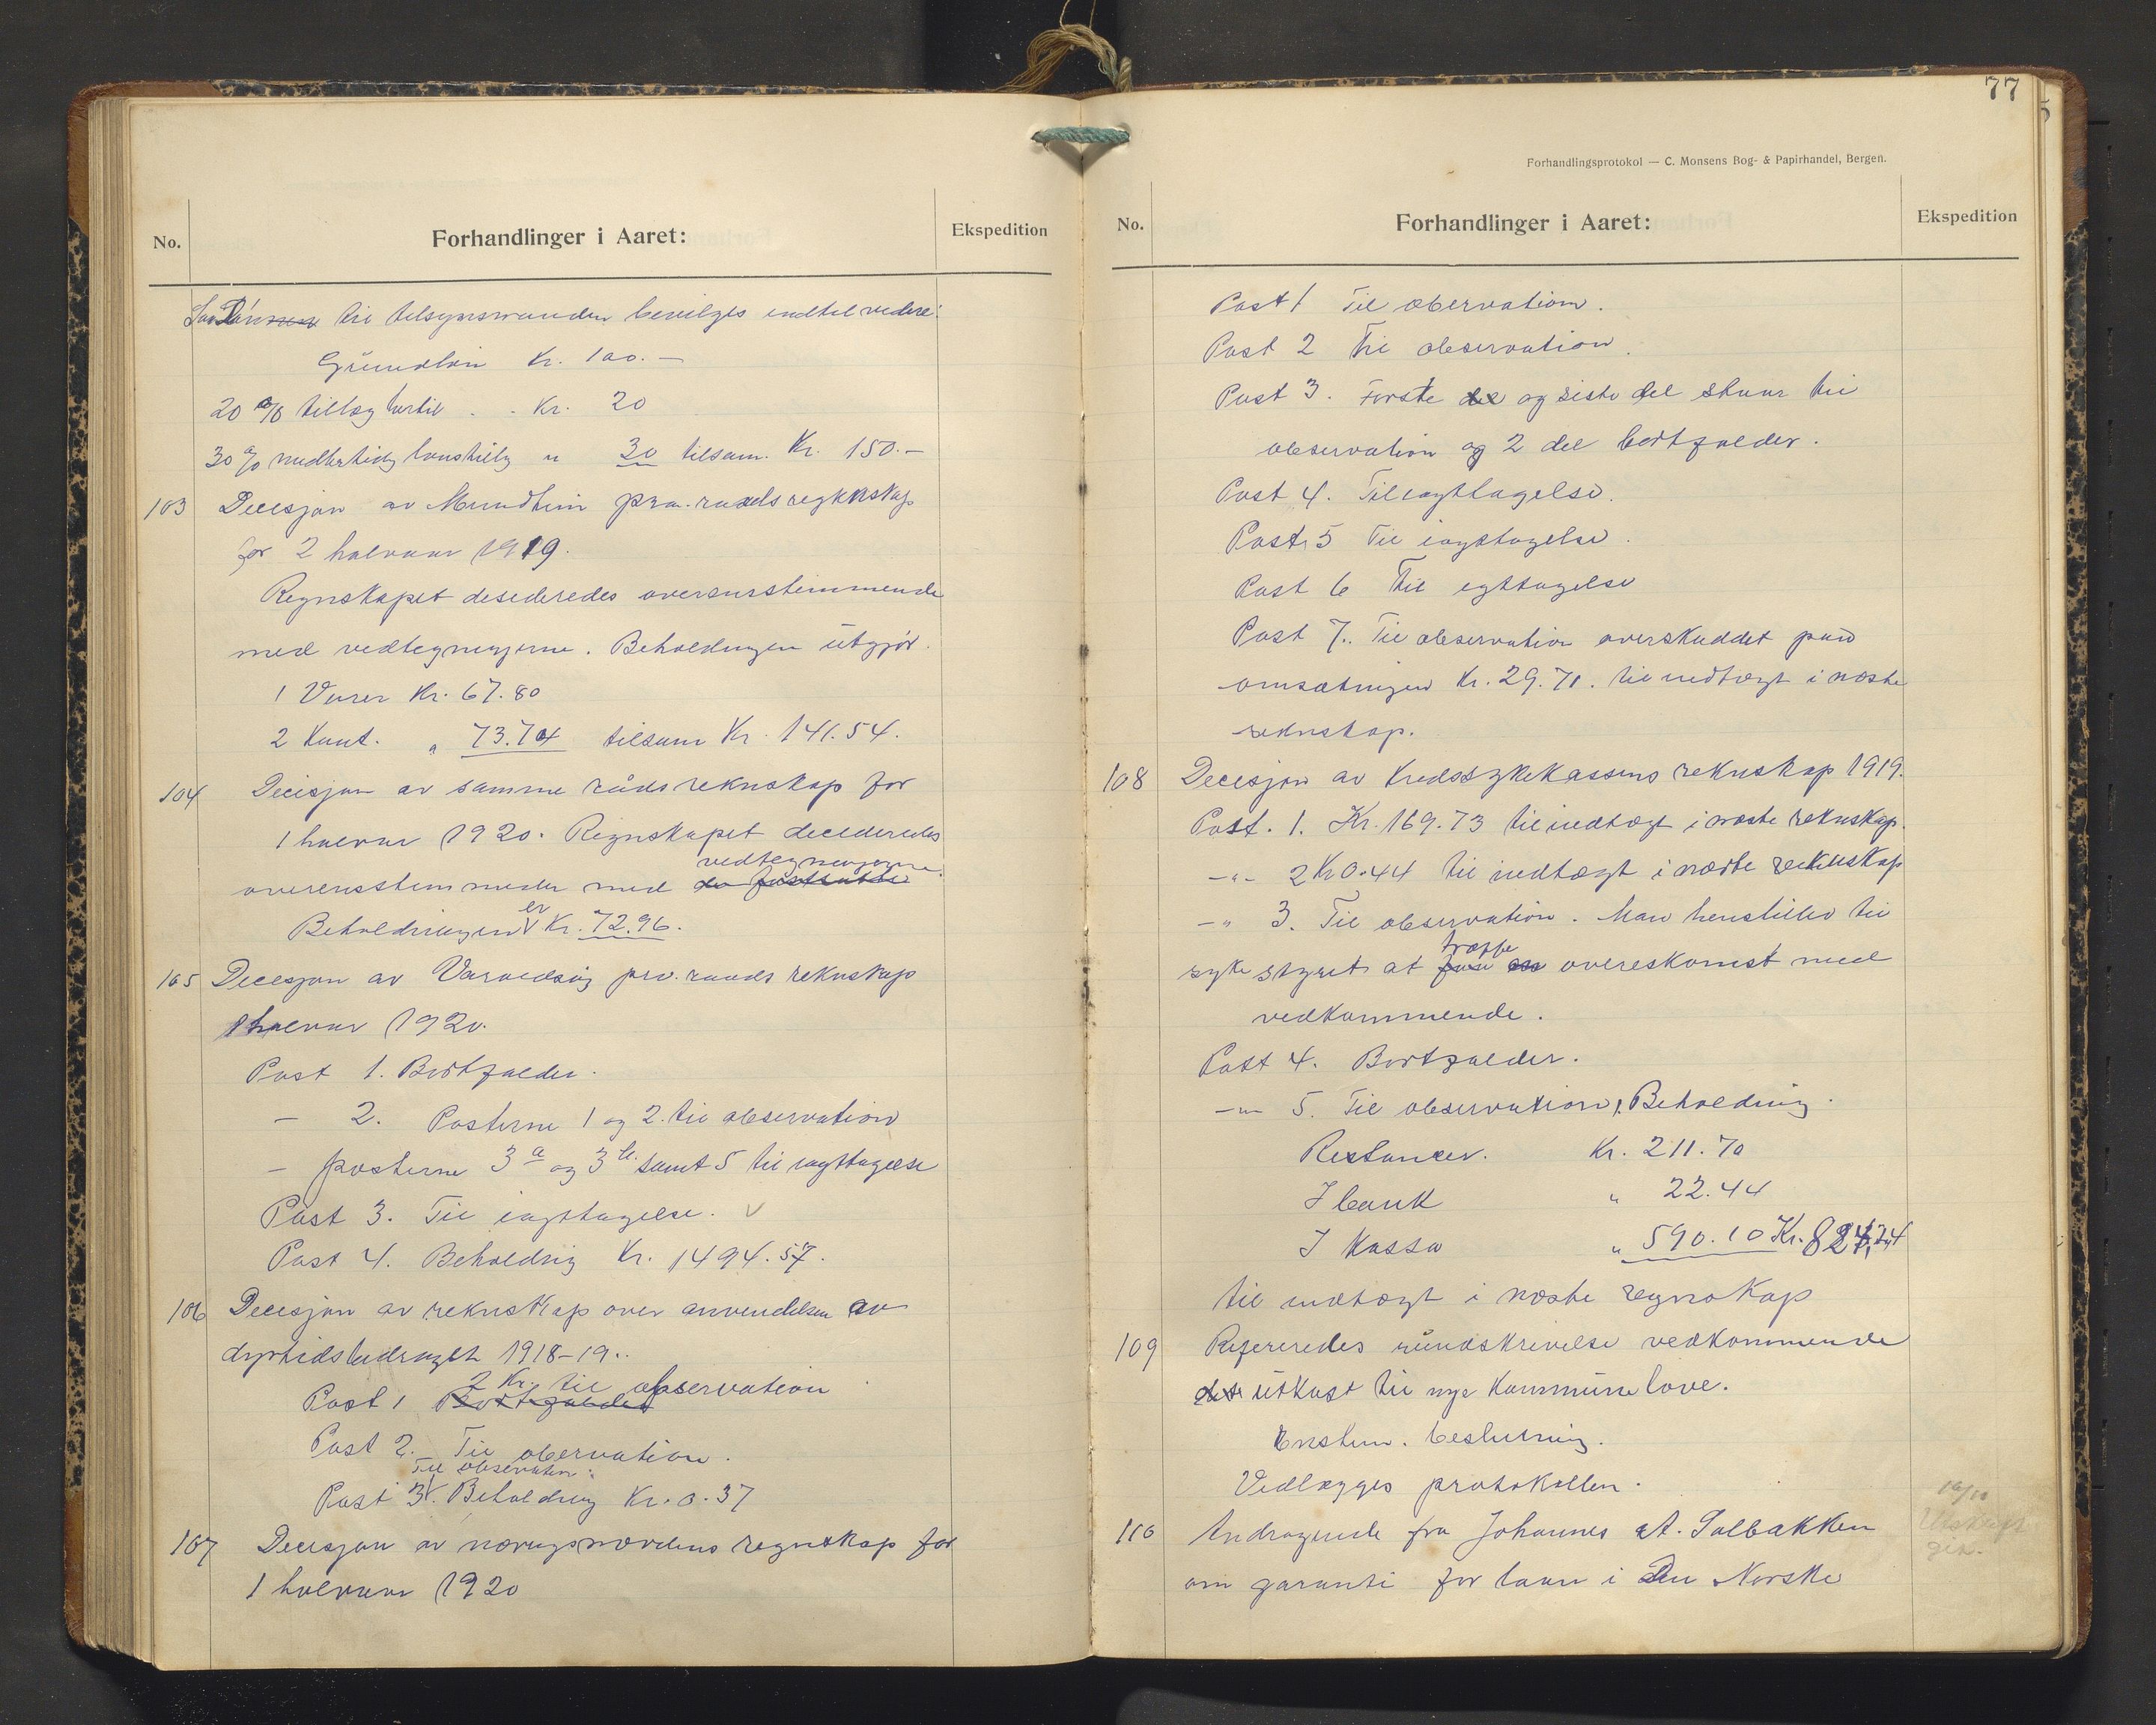 No.
Forhandlinger i Aaret:
Ekspedition
til tilsynsmanden bevilges indtil videre:
Grundløn Kr. 100.—
20 % tillæg hertil . . Kr. 20
30 % midlertidig lønstillæg " 30 tilsam. Kr. 150.—
103 Decisjon av Mundheim pro. raads regnskap
for 2 halvaar 1919.
Regnskapet desideredes overensstemmende
med vedtegningerne. Beholdningen utgjør.
1 Varer Kr. 67.80
2 Kont. " 73.74 tilsam Kr. 141.54.
104 Decisjon av samme råds reknskap for
1 halvaar 1920. Regnskapet decideredes
vedtegningerne.
overensstemmende med de fastsatte
Beholdningen er Kr. 72.96.
105 Decisjon av Varaldsøy pro. raads reknskap
1 halvaar 1920.
Post 1. Bortfalder.
— 2. Posterne 1 og 2. til observation
— posterne 3 a og 3 b. samt 5 til iagttagelse
Post 3. Til iagttagelse. v
Post 4. Beholdnig Kr. 1494.57.
106 Decisjon av reknskap over anvendelsen av
dyrtidsbidraget 1918-19.
2 Kr. til observation
Post 1 Bortfalder
Post 2. Til obervation.
Til observation.
Post 3. Beholdning Kr. 0.37
107 Decisjon av næringsnævdens regnskap for
1 halvaar 1920
77
Forhandlingsprotokol — C. Monsens Bog- & Papirhandel, Bergen.
No.
Forhandlinger i Aaret:
Ekspedition
Post 1 Til obervation.
Post 2 Til observation.
Post 3. Første del og siste del staar til
observation og 2 del bortfalder.
Post 4. Til iagttagelse.
Post 5 Til iagttagelse.
Post 6 Til igttagelse
Post 7. Til observation overskuddet paa
omsætningen Kr. 29.71. til indtægt i næste
reknskap.
108 Decisjon av kredssykekassens reknskap 1919.
Post. 1. Kr. 169.73 til indtægt i næste reknskap.
-"- 2 Kr 0.44 til indtægt i næste reknskap
-" 3. Til observation. Man henstiller til
træffe
syke styret at overeskomst med
vedkommende.
Post 4. Bortfalder.
-"- 5. Til observation, Beholdning.
Restancer. Kr. 211.70
I bank " 22.44
I Kassa " 590.10 Kr. 824.24
til indtægt i næste regnskap
109 Refereredes rundskrivelse vedkommende
det utkast til nye Kommunelove.
Enstem. beslutning.
Vedlægges protokollen.
110 Andragende fra Johannes A. Solbakken
om garanti for laan i Den Norske